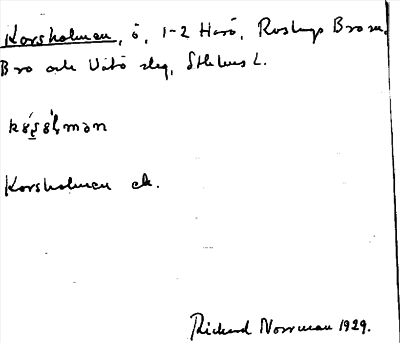 Korsholmen, ö, 1-2 Harö, Roslags Bro sn,
Bro och Vätö slg, Sthlms L.
Korsholmen ek.
Rickard Norrman 1929.